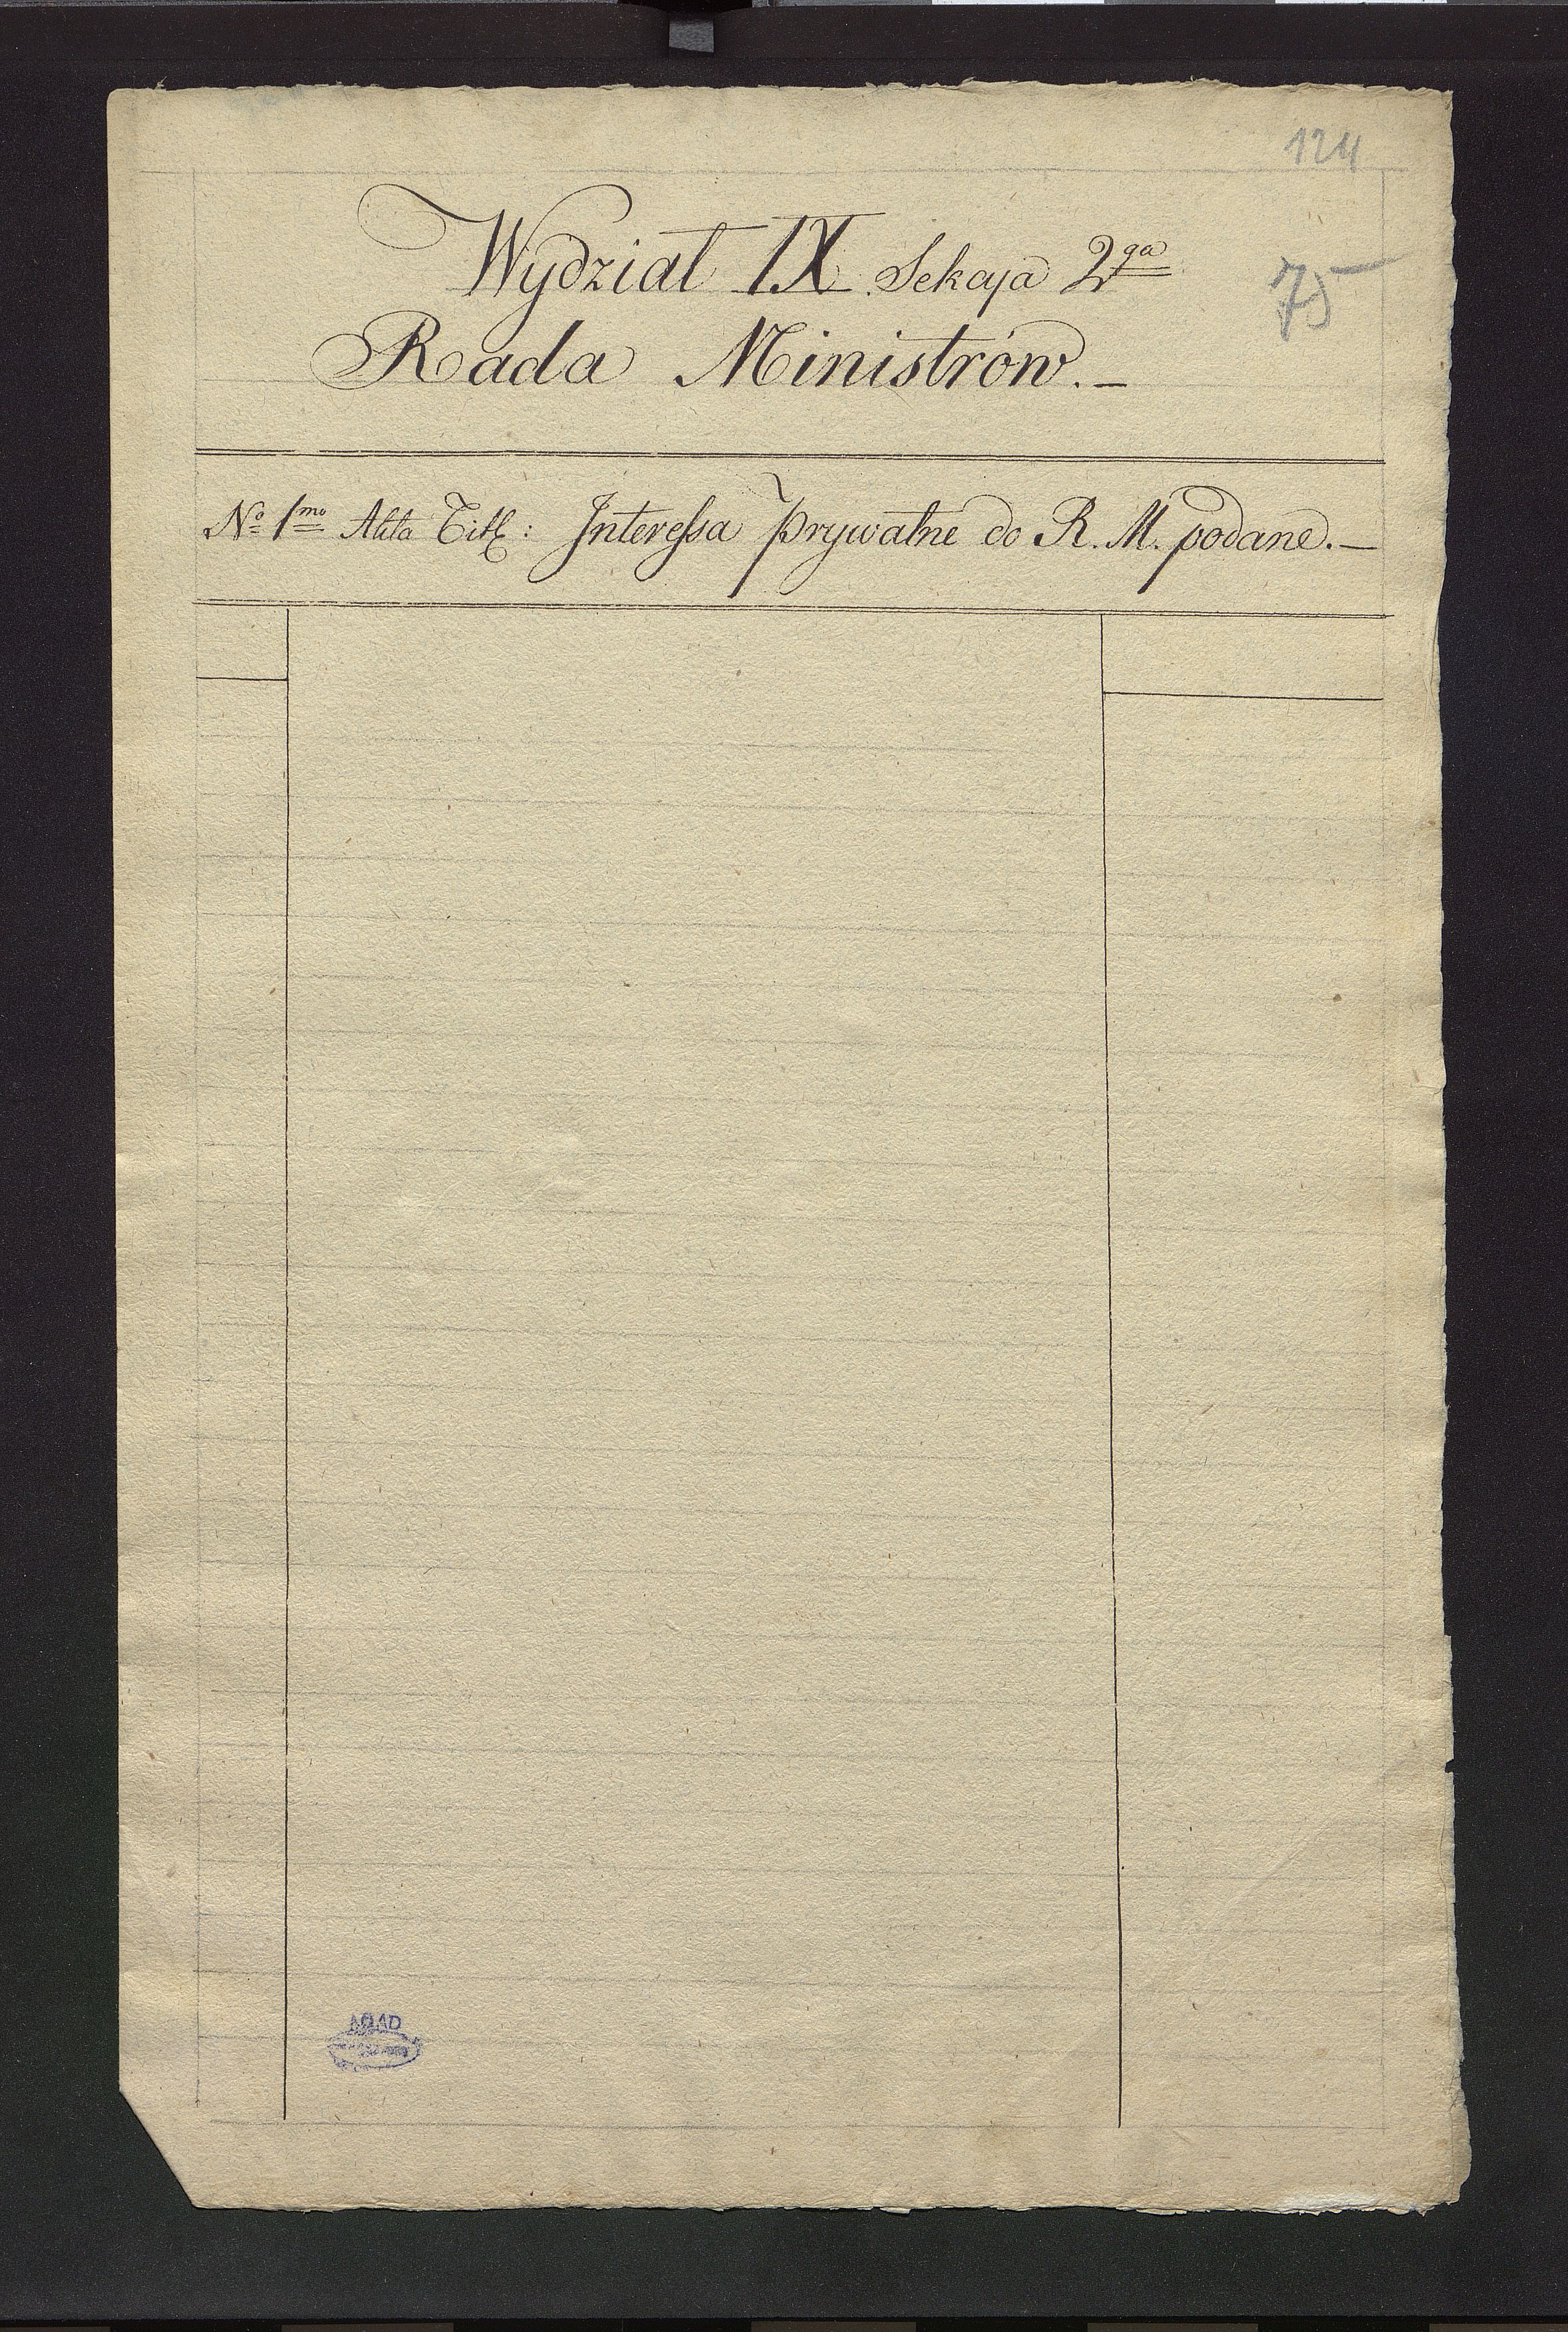 124
Wydział IX Sekcja 2ga
75
Rada Ministrów. —
No 1mo Akta Titt: Interessa prywatne do R. M. podane. —
AGAD